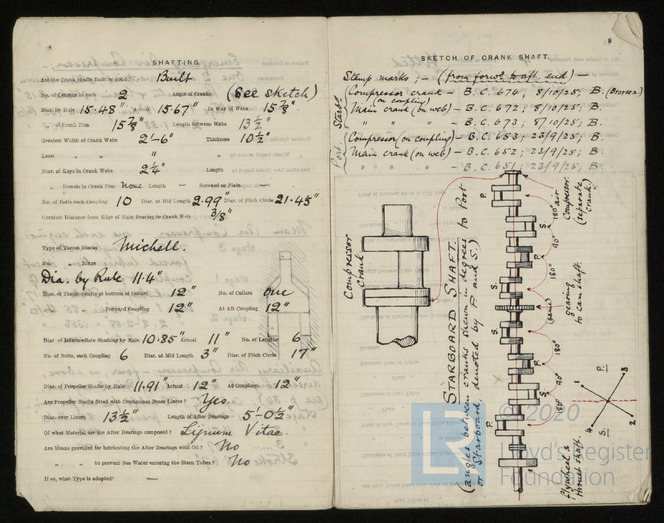 SHAFTING
Are the Crank Shafts Built or Solid? Built
No. of Lengths in each 2 Angle of Cranks (See sketch)
Diar. by Rule 15.48" Actual 15.67" In Way of Webs 15 7/8"
" of Crank Pins 15 7/8" Length between Webs 13 1/2"
Greatest Width of Crank Webs 2'-6" Thickness 10 1/2"
Least " " "
Diar. of Keys in Crank Webs 2 1/4" Length
" Dowels in Crank Pins None Length — Screwed or Plain —
No. of Bolts each Coupling 10 Diar. at Mid Length 2.99 Diar. of Pitch Circle 21.45"
Greatest Distance from Edge of Main Bearing to Crank Web 3/8"
Type of Thrust Blocks Michell.
No. " Rings
Dia. by Rule 11.4"
Diar. of Thrust Shafts at bottom of Collars 12" No. of Collars One
" " Forward Coupling 12" At Aft Coupling 12"
Diar. of Intermediate Shafting by Rule 10.85" Actual 11" No. of Lengths 6
No. of Bolts, each Coupling 6 Diar. at Mid Length 3" Diar. of Pitch Circle 17"
Diar. of Propeller Shafts by Rule 11.91" Actual 12" At Couplings 12"
Are Propeller Shafts fitted with Continuous Brass Liners? Yes.
Diar. over Liners 13 1/2" Length of After Bearings 5'-0 1/2"
Of what Material are the After Bearings composed? Lignum Vitae.
Are Means provided for lubricating the After Bearings with Oil? No
" " to prevent Sea Water entering the Stern Tubes? No
If so, what Type is adopted? —
9
SKETCH OF CRANK SHAFT.
Stamp marks; – (from forwd to aft end) –
Starbd
Compressor crank – B.C. 674, 8/10/25; B.
(on coupling)
Main crank (on web) – B.C. 672; 8/10/25; B.
" " " – B.C. 673; 5/10/25; B.
Port
Compressor (on coupling) – B.C. 653; 23/9/25; B.
Main crank (on web) – B.C. 652; 23/9/25; B.
" " " – B.C. 651; 23/9/25; B.
Compressor
Crank
STARBOARD SHAFT.
(angles between cranks shewn in degrees to Port
or Starboard,
denoted by P and S.)
P.
180°
air
Compressor
(separate
crank)
S.
90°
P.
180°
S.
gearing
to cam shaft.
P.
180°
S.
90°
P.
180°
S.
Flywheel &
thrust shaft.
P.
1
3
4
2
S.
© 2020
LR
Lloyd's Register
Foundation